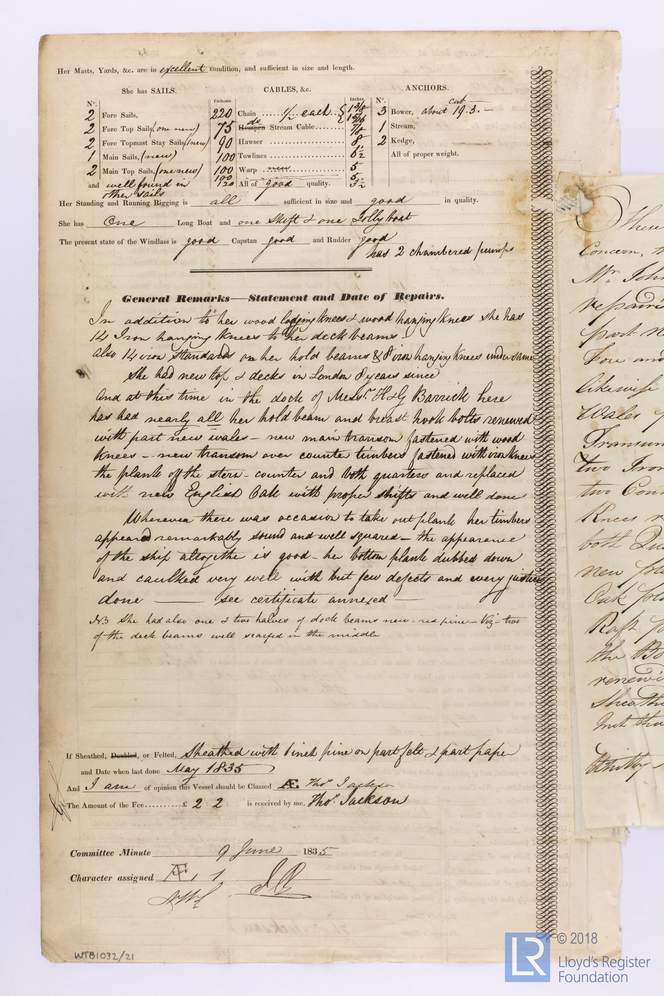 Her Masts, Yards, &c. are in excellent condition, and sufficient in size and length.
She has SAILS.
CABLES, &c.
ANCHORS.
N°.
Fathoms.
Inches.
N°.
2 Fore Sails,
2 Fore Top Sails, (one new)
2 Fore Topmast Stay Sails, (new)
1 Main Sails, (new)
2 Main Top Sails, (one new)
and well found in
other sails
220 Chain each
75 Hempen Stream Cable
90 Hawser 8
100 Towlines 6½
100 Warp 5
120 All of good quality. 5½
3 Bower, about cwt 19.3.-
1 Stream,
2 Kedge,
All of proper weight.
Her Standing and Running Rigging is all sufficient in size and good in quality.
She has One Long Boat and one Skiff & one Jolly boat
The present state of the Windlass is good Capstan good and Rudder good
has 2 chambered pumps
General Remarks—Statement and Date of Repairs.
In addition to her wood lodging knees & wood hanging knees she has
14 Iron hanging knees to her deck beams.
also 14 iron standards on her hold beams & 8 iron hanging knees under same
She had new top & decks in London 8 years since
And at this time in the dock of Messrs H & G Barrick here
has had nearly all her hold beam and breast hook bolts renewed
with part new wales – new main transom fastened with wood
knees – new transom over counter timbers fastened with iron knees
the plank of the stern – counter and both quarters and replaced
with new English Oak with proper shifts and well done
Wherever there was occasion to take out plank her timbers
appeared remarkably sound and well squared – the appearance
of the ship altogethe is good – her bottom plank dubbed down
and caulked very well with but few defects and every justice
done — see certificate annexed —
NB She had also one & two halves of deck beams new – red pine – Viz – two
of the deck beams well scarfed in the middle
If Sheathed, Doubled, or Felted, Sheathed with inch pine on part felt & part paper
and Date when last done May 1835
And I am of opinion this Vessel should be Classed Æ Thos Jackson
The Amount of the Fee £ 2 2 is received by me, Thos Jackson
Committee Minute 9 June 1835
Character assigned Æ 1
WTB1032/21
There
Concern,
Mr. John
repairs
part
Fore and
likewise
Wales
Transom
two Iron
two
Knees
both
new
Oak
the
renew
Sheath
Whitby
LR
© 2018
Lloyd's Register
Foundation